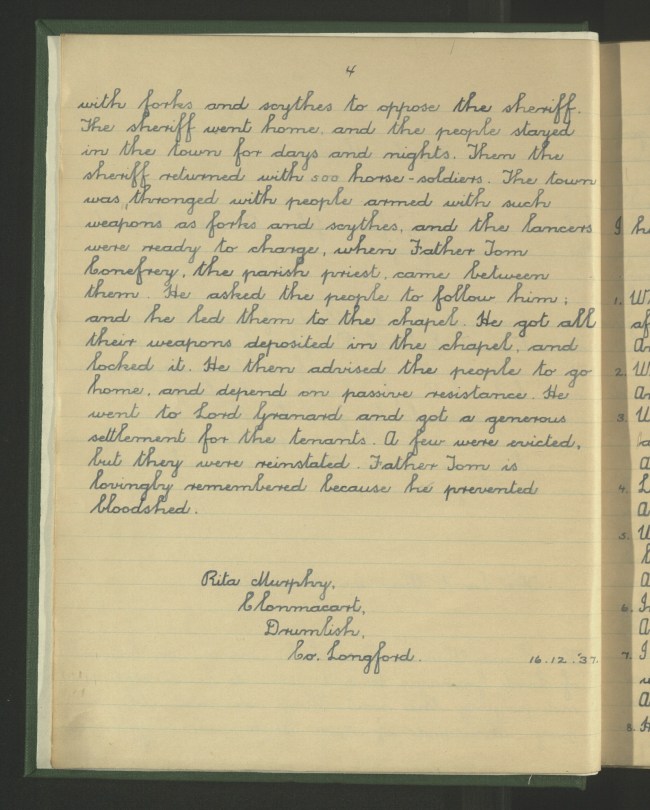 4
with forks and scythes to oppose the sheriff.
The sheriff went home, and the people stayed
in the town for days and nights. Then the
sheriff returned with 500 horse-soldiers. The town
was thronged with people armed with such
weapons as forks and scythes, and the lancers
were ready to charge, when Father Tom
Conefrey, the parish priest, came between
them. He asked the people to follow him;
and he led them to the chapel. He got all
their weapons deposited in the chapel, and
locked it. He then advised the people to go
home, and depend on passive resistance. He
went to Lord Granard and got a generous
settlement for the tenants. A few were evicted,
but they were reinstated. Father Tom is
lovingly remembered because he prevented
bloodshed.
Rita Murphy,
Clonmacart,
Drumlish,
Co. Longford.
16.12.'37.
I h
1. W
af
2. W
3.
4. L
5.
6. I
7. I
8. H